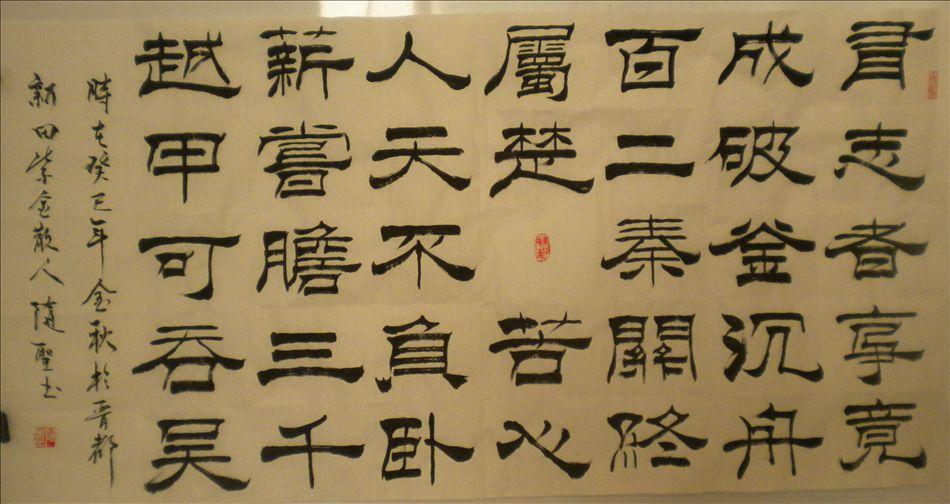 有志者事竟
成破釜沉舟
百二秦關終
屬楚苦心
人天不負卧
薪嘗膽三千
越甲可吞吴
時在癸巳年金秋於晉都
新田紫金散人隨聖书